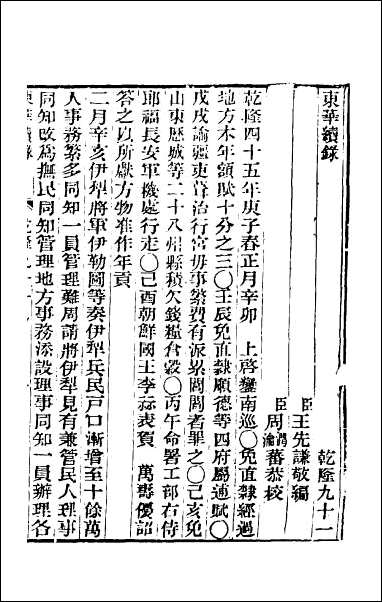 東華續錄　乾隆九十一
臣王先謙敬編
臣周潤瀹蕃恭校
乾隆四十五年庚子春正月辛卯　上啓鑾南巡〇免直隸經過
地方本年額賦十分之三〇壬辰免直隸順德等四府屬逋賦〇
戊戌諭疆吏葺治行宮毋事繁費有派累閭閻者罪之〇己亥免
山東歷城等二十八州縣積欠錢糧倉穀〇丙午命署工部右侍
郎福長安軍機處行走〇己酉朝鮮國王李祘表賀　萬壽優詔
答之以所獻方物准作年貢
二月辛亥伊犁將軍伊勒圖等奏伊犁兵民戶口漸增至十餘萬
人事務繁多同知一員管理難周請將伊犁見有兼管民人理事
同知改為撫民同知管理地方事務添設理事同知一員辦理各